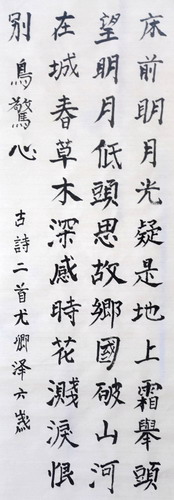 床前明月光疑是地上霜舉頭
望明月低頭思故鄉國破山河
在城春草木深感時花濺淚恨
別鳥驚心
古詩二首尤卿泽六歲